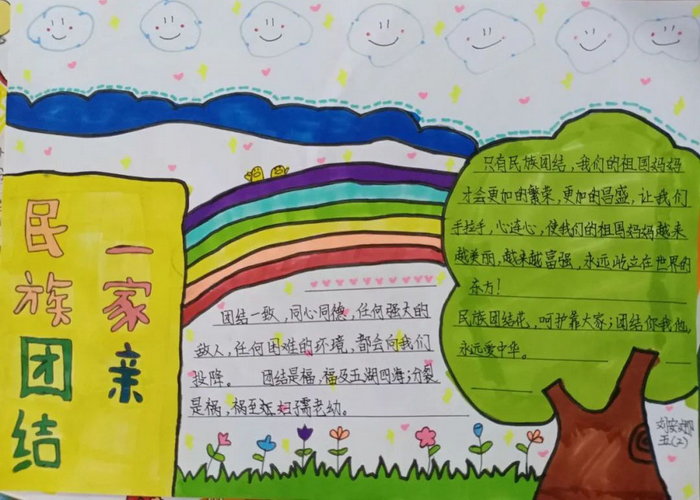 民族团结
一家亲
团结一致,同心同德,任何强大的
敌人,任何困难的环境,都会向我们
投降。 团结是福,福及五湖四海;分裂
是祸,祸至妊妇孺老幼。
只有民族团结,我们的祖国妈妈
才会更加的繁荣,更加的昌盛,让我们
手拉手,心连心,使我们的祖国妈妈越来
越美丽,越来越富强,永远屹立在世界的
东方!
民族团结花,呵护靠大家;团结你我他,
永远爱中华。
刘安娜
五(2)